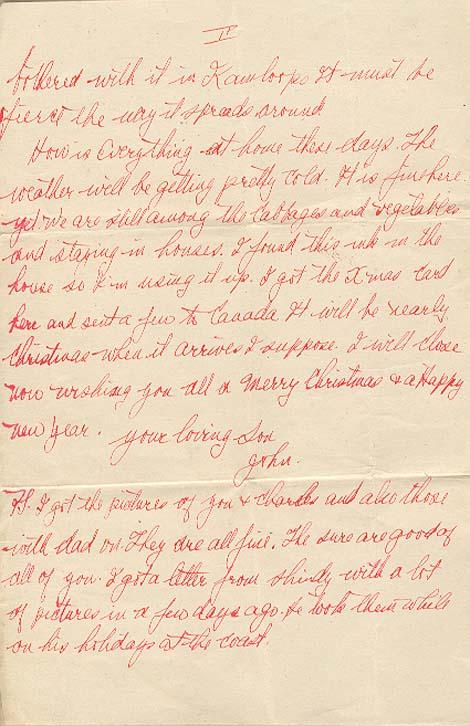 II
bothered with it in Kamloops. It must be
fierce the way it spreads around
How is Everything at home these days. The
weather will be getting pretty cold. It is fine here
yet. We are still among the Cabbages and vegetables
and staying in houses. I found this ink in the
house so I'm using it up. I got the X-mas card
here and sent a few to Canada It will be nearly
Christmas when it arrives I suppose. I will close
now wishing you all a Merry Christmas & a Happy
new year. your loving Son
John.
P.S. I got the pictures of you & charles and also those
with dad on. They are all fine. The sure are good of
all of you. I got a letter from shirly with a lot
of pictures in a few days ago. He took them while
on his holidays at the coast.